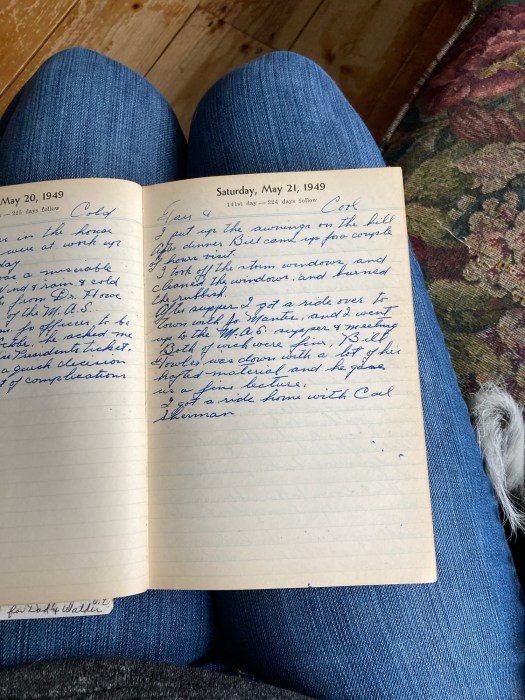 May 20, 1949
225 days follow
Cold
in the house
were at work up
day
was a miserable
Wind & rain & cold
from Dr. Howe
of the M.A.S.
for officers, to be
He asked me
Presidents ticket.
a quick decision
of complications
Saturday, May 21, 1949
141st day—224 days follow
Cool
I put up the awnings on the hill
After dinner Bill came up for a couple
of hours visit.
I took off the storm windows, and
cleaned the windows, and burned
the rubbish.
After supper I got a ride over to
Town with Jo. and I went
up to the M.A.S. supper & meeting
Both of which were fine. Bill
Fowler was down with a lot of his
hafted material and he gave
us a fine lecture.
I got a ride home with Carl
Sherman
for Dad & Walder